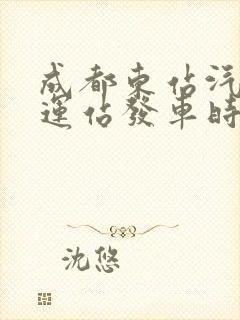 成都東佔汽
運佔發車時
沈悠